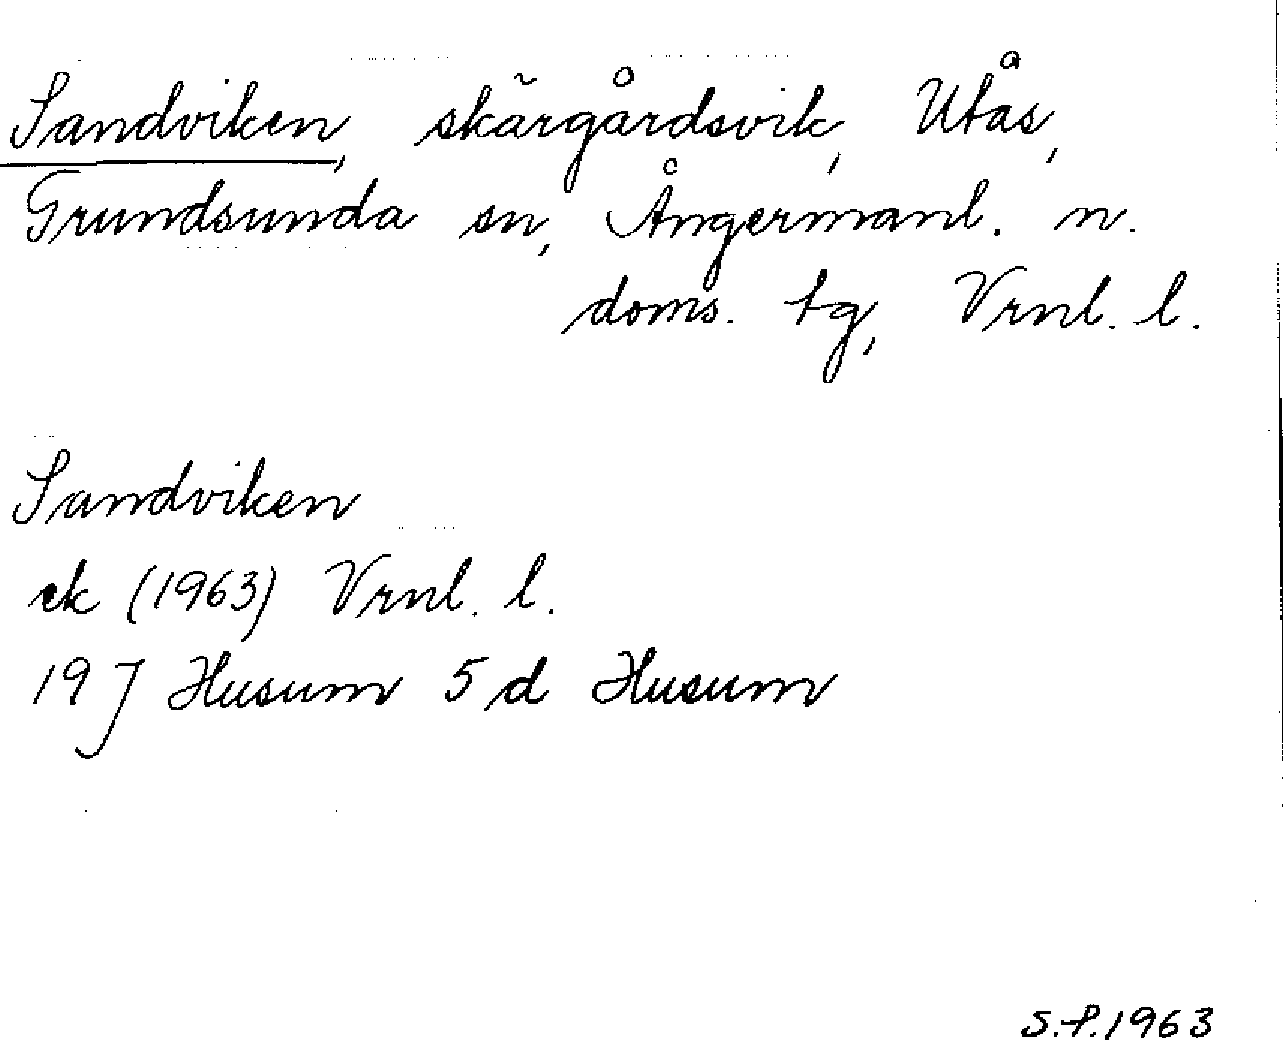 Sandviken, skärgårdsvik, Utås,
Grundsunda sn, Ångermanl. n.
doms. tg, Vrnl. l.
Sandviken
ek (1963) Vrnl. l.
19 J Husum 5 d Husum
S.P. 1963